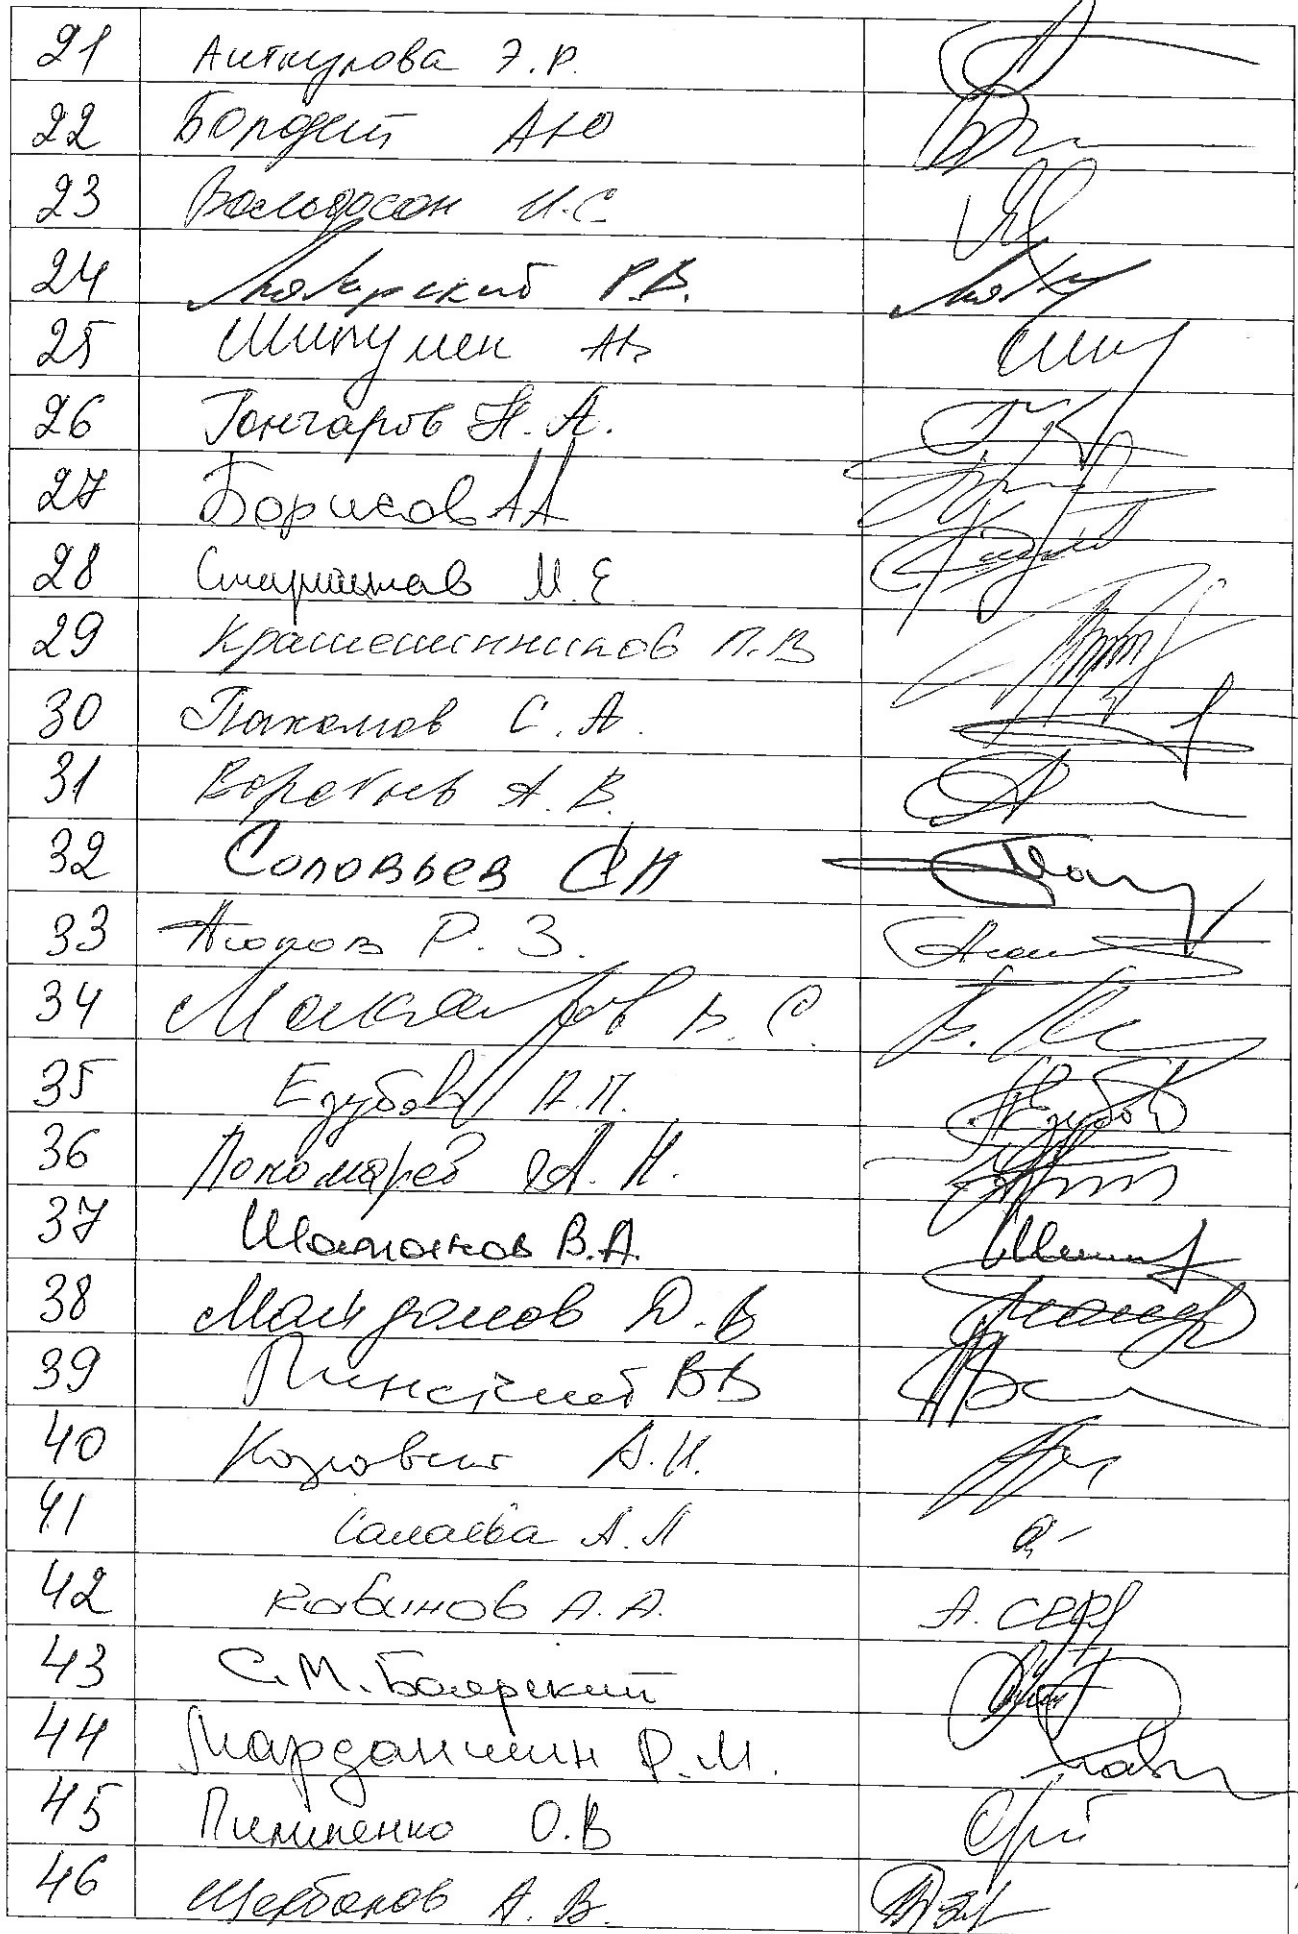 21 Аиткулова Э.Р.
22 АЮ
23 Вольфсон И.С.
24 Лябихов Р.В.
25 Шипулин АВ
26 Гончаров Н.А.
27 Борисов АА
28 Старшинов М.Е.
29 Крашенинников П.В
30 Пахомов С.А.
31 Воробьев А.В.
32 Соловьев СА
33 Аюпов Р.З.
34 Макаров В.С.
35 Езубов А.П.
36 Пономарёв А.Н.
37 Шаманов В.А.
38 Майданов Д.В
39 Пинский ВВ
40 А.И.
41 Салаева А.Л
42 Кабанов А.А.
43 С.М.Боярский
44 Марданшин Р.М.
45 Пилипенко О.В
46 Щербаков А.В.